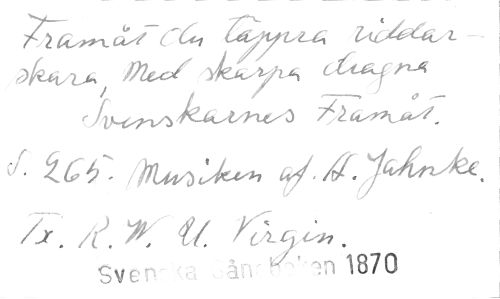 Framåt du tappra riddar-
skara, Med skarpa dragna
Svenskarnes Framåt.
S. 265. Musiken af H. Jahnke.
Tx. R. W. U. Virgin.
Svenska Sångboken 1870